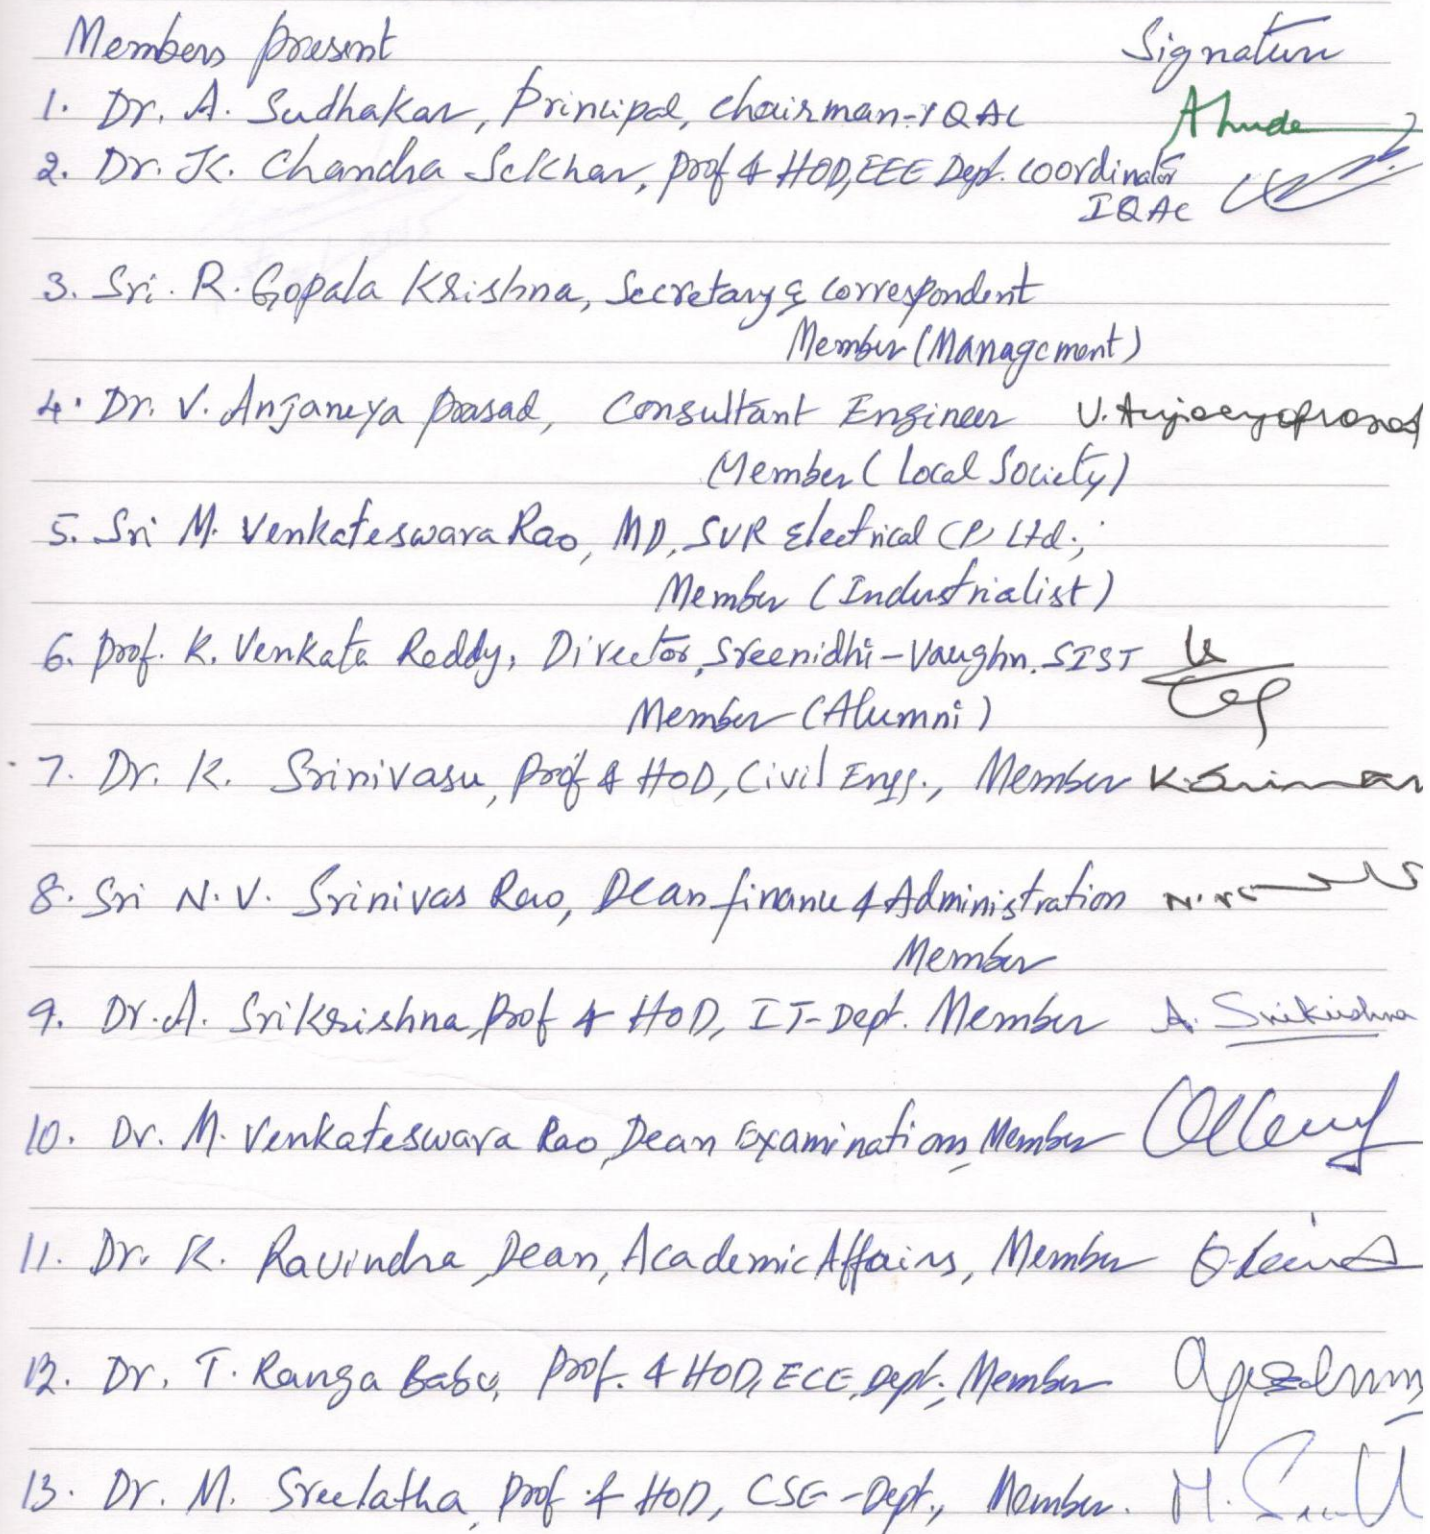 Members present Signature
1. Dr. A. Sudhakar, Principal, Chairman-IQAC
2. Dr. K. Chandra Sekhar, Prof & HOD, EEE Dept. Coordinator
IQAC
3. Sri. R. Gopala Krishna, Secretary & Correspondent
Member (Management)
4. Dr. V. Anjaneya Prasad, Consultant Engineer V. Anjaneyaprasad
Member (Local Society)
5. Sri M. Venkateswara Rao, MD, SVR Electrical (P) Ltd.,
Member (Industrialist)
6. Prof. K. Venkata Reddy, Director, Sreenidhi-Vaughn. SIST
Member (Alumni)
7. Dr. K. Srinivasu, Prof & HOD, Civil Engg., Member
8. Sri N. V. Srinivas Rao, Dean finance & Administration
Member
9. Dr. A. Srikrishna, Prof & HOD, IT-Dept. Member A. Srikrishna
10. Dr. M. Venkateswara Rao, Dean Examinations, Member
11. Dr. K. Ravindra, Dean, Academic Affairs, Member
12. Dr. T. Ranga Babu, Prof. & HOD, ECE, Dept., Member
13. Dr. M. Sreelatha, Prof & HOD, CSE-Dept., Member.